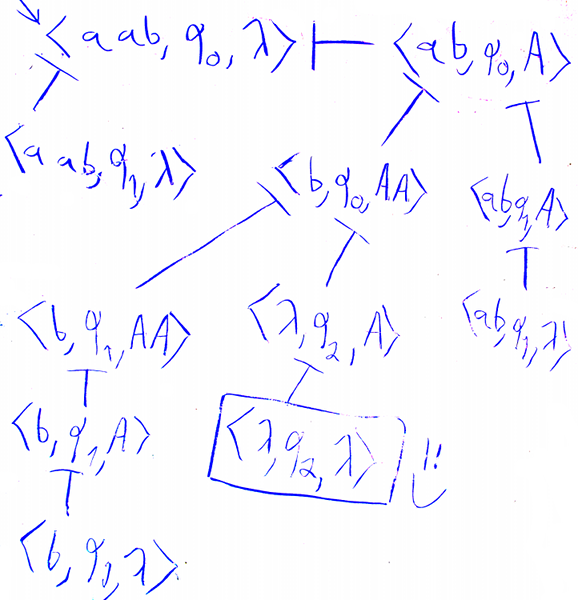 ⟨aab, q₀, λ⟩ ⊢ ⟨ab, q₀, A⟩
⟨aab, q₁, λ⟩
⟨b, q₀, AA⟩
⟨ab, q₁, A⟩
⟨b, q₁, AA⟩
⟨λ, q₂, A⟩
⟨ab, q₁, λ⟩
⟨b, q₁, A⟩
⟨λ, q₂, λ⟩
⟨b, q₁, λ⟩